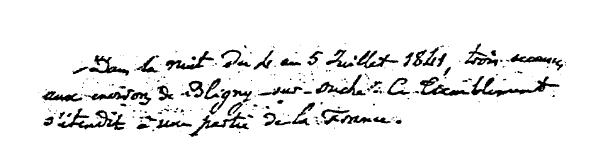 Dans la nuit du 4 au 5 Juillet 1841, trois secousses
aux environs de Bligny-sur-Ouche. Ce tremblement
s'étendit à une partie de la France.